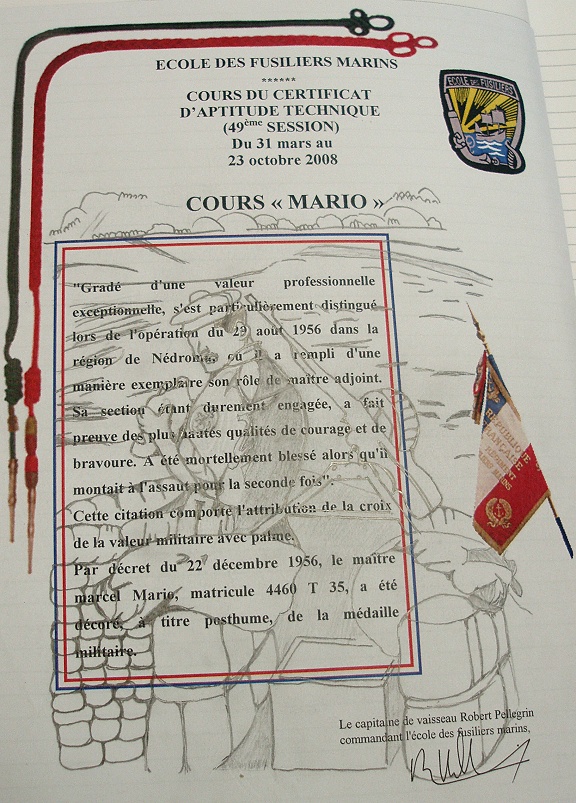 ECOLE DES FUSILIERS MARINS
******
COURS DU CERTIFICAT
D'APTITUDE TECHNIQUE
(49ème SESSION)
Du 31 mars au
23 octobre 2008
ECOLE DES FUSILIERS
COURS « MARIO »
"Gradé d'une valeur professionnelle
exceptionnelle, s'est particulièrement distingué
lors de l'opération du 29 août 1956 dans la
région de Nédroma, où il a rempli d'une
manière exemplaire son rôle de maître adjoint.
Sa section étant durement engagée, a fait
preuve des plus hautes qualités de courage et de
bravoure. A été mortellement blessé alors qu'il
montait à l'assaut pour la seconde fois".
Cette citation comporte l'attribution de la croix
de la valeur militaire avec palme.
Par décret du 22 décembre 1956, le maître
marcel Mario, matricule 4460 T 35, a été
décoré, à titre posthume, de la médaille
militaire.
REPUBLIQUE
FRANÇAISE
Le capitaine de vaisseau Robert Pellegrin
commandant l'école des fusiliers marins,